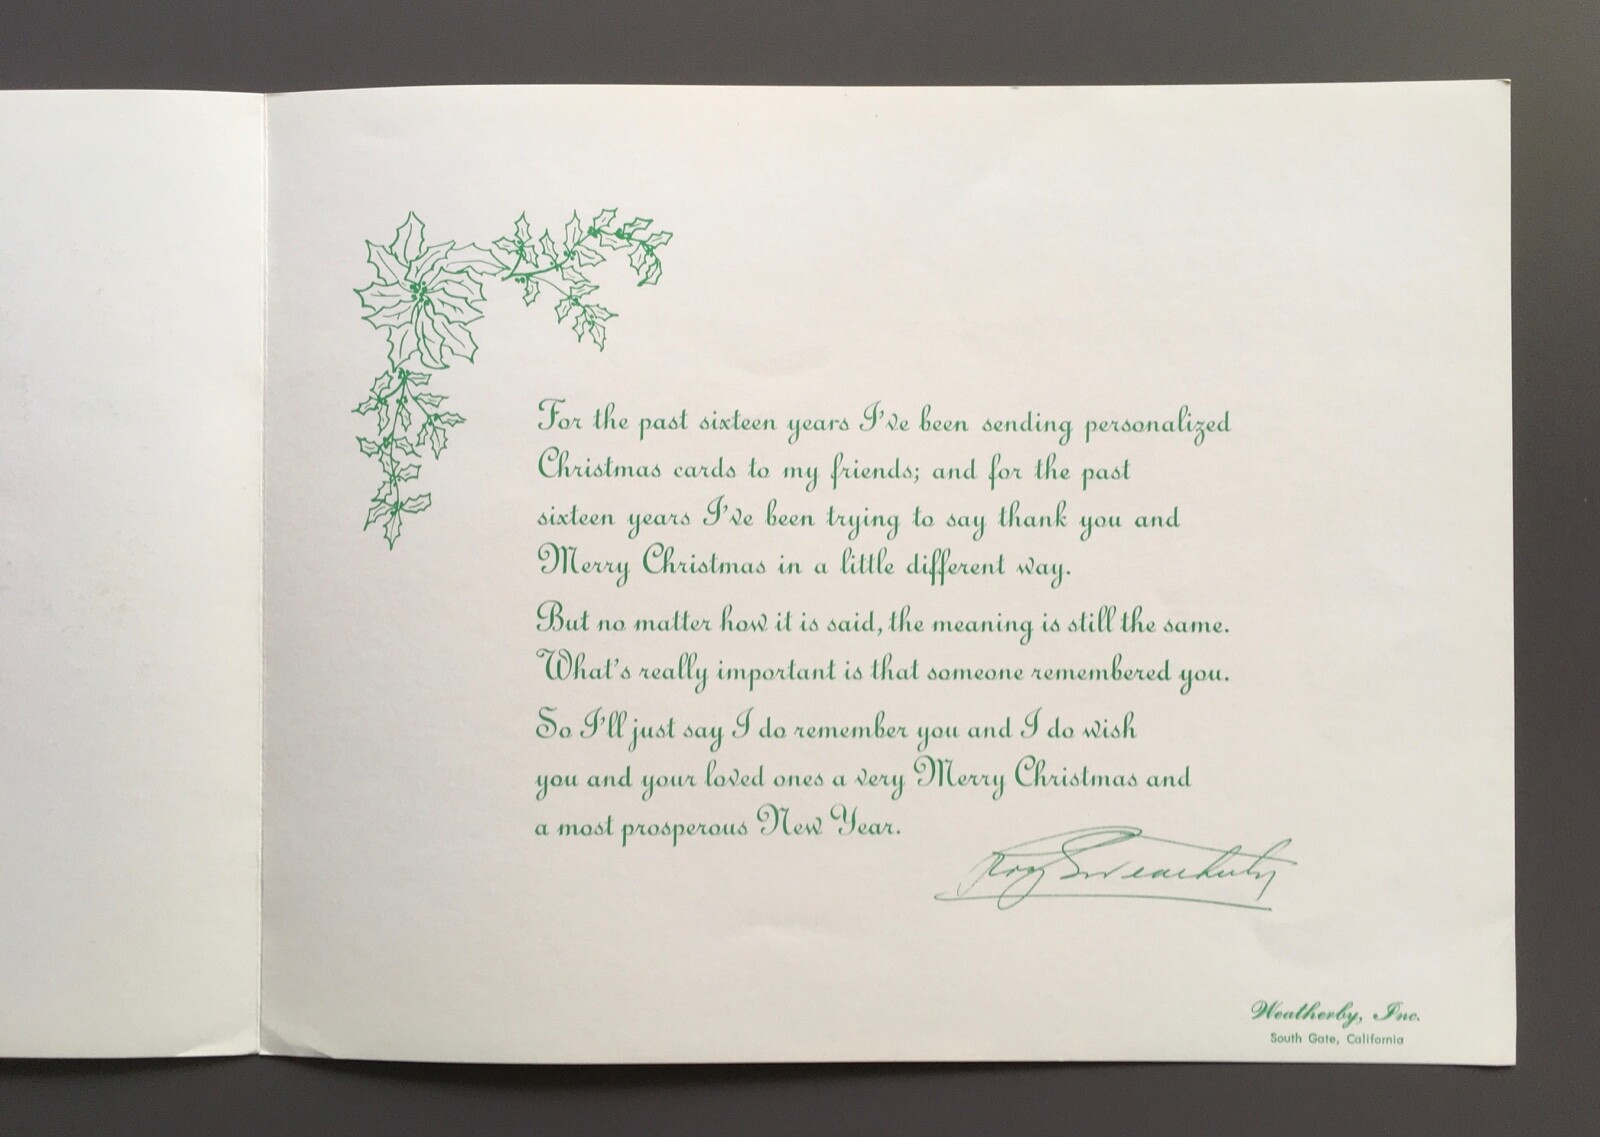 For the past sixteen years I've been sending personalized
Christmas cards to my friends; and for the past
sixteen years I've been trying to say thank you and
Merry Christmas in a little different way.
But no matter how it is said, the meaning is still the same.
What's really important is that someone remembered you.
So I'll just say I do remember you and I do wish
you and your loved ones a very Merry Christmas and
a most prosperous New Year.
Roy E Weatherby
Weatherby, Inc.
South Gate, California